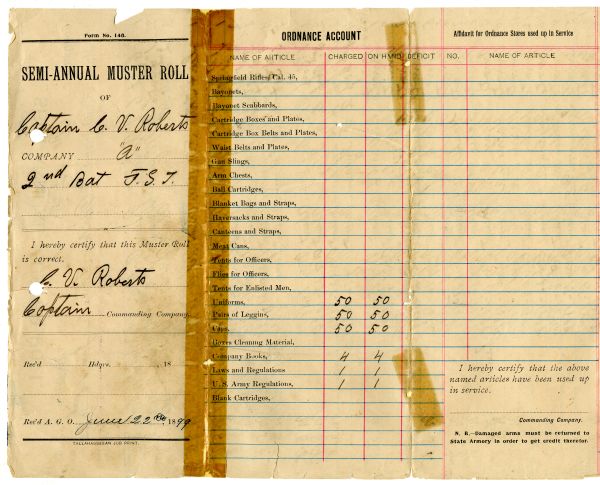 Form No. 146.
SEMI-ANNUAL MUSTER ROLL
OF
Captain C. V. Roberts
COMPANY "A"
2nd Bat F. S. T.
I hereby certify that this Muster Roll
is correct.
C. V. Roberts
Captain Commanding Company.
Rec'd Hdqrs. 18
Rec'd A. G. O. June 22nd 1899
TALLAHASSEEAN JOB PRINT.
ORDNANCE ACCOUNT
NAME OF ARTICLE CHARGED ON HAND DEFICIT
Springfield Rifles, Cal. 45,
Bayonets,
Bayonet Scabbards,
Cartridge Boxes and Plates,
Cartridge Box Belts and Plates,
Waist Belts and Plates,
Gun Slings,
Arm Chests,
Ball Cartridges,
Blanket Bags and Straps,
Haversacks and Straps,
Canteens and Straps,
Meat Cans,
Tents for Officers,
Flies for Officers,
Tents for Enlisted Men,
Uniforms, 50 50
Pairs of Leggins, 50 50
Caps, 50 50
Boxes Cleaning Material,
Company Books, 4 4
Laws and Regulations 1 1
U. S. Army Regulations, 1 1
Blank Cartridges,
Affidavit for Ordnance Stores used up in Service
NO. NAME OF ARTICLE
I hereby certify that the above
named articles have been used up
in service.
Commanding Company.
N. B.—Damaged arms must be returned to
State Armory in order to get credit therefor.